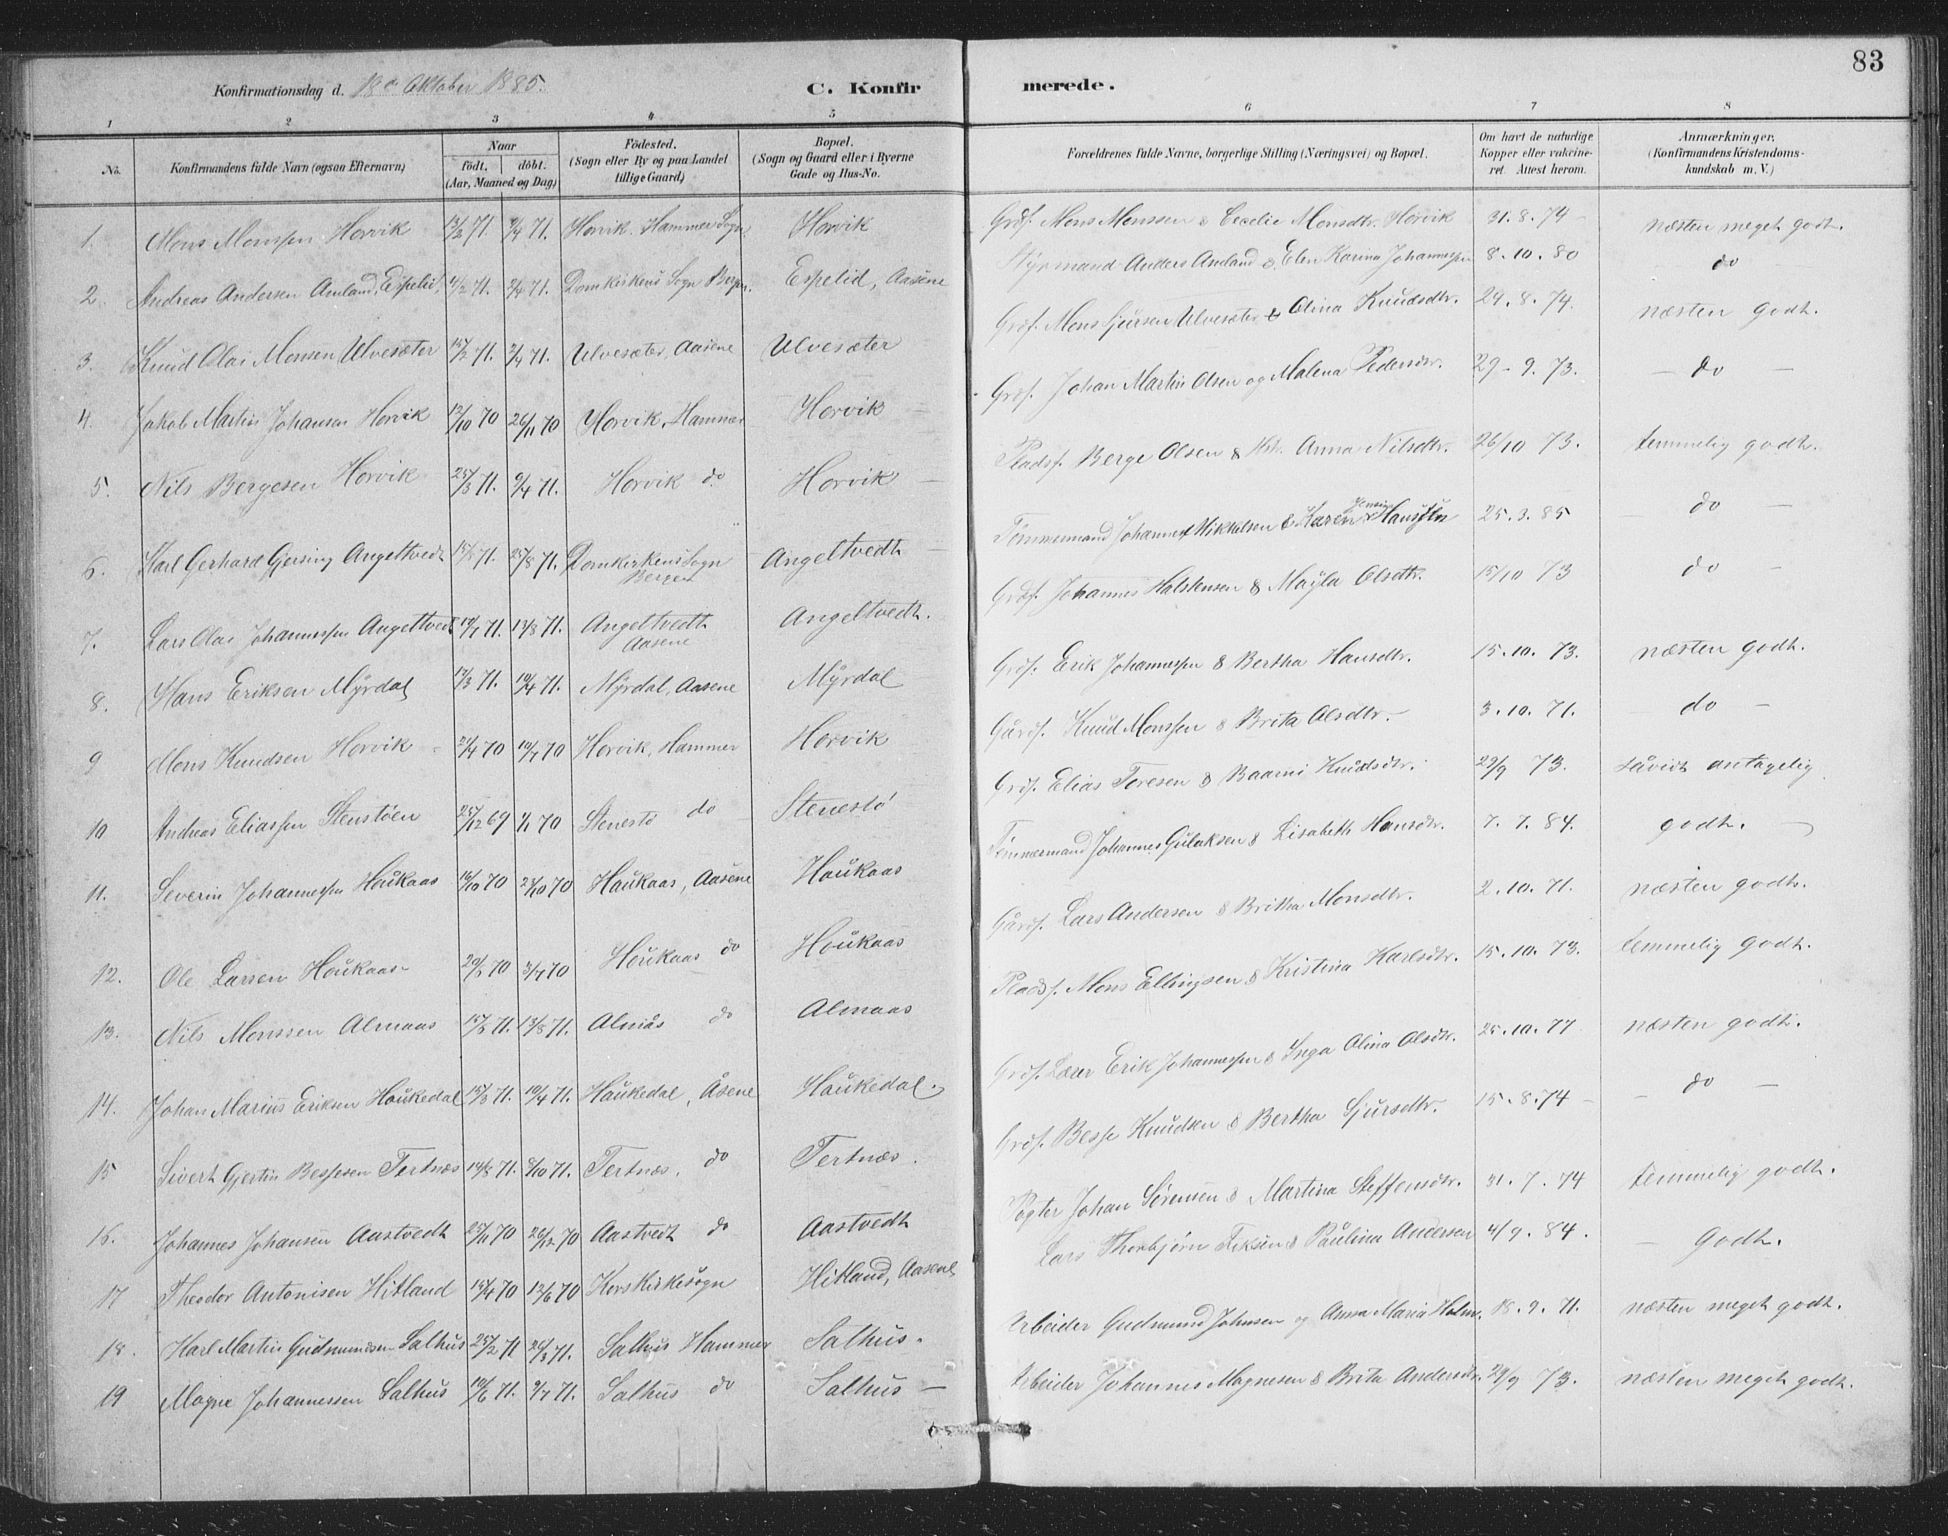 83
Konfirmationsdag d. 18de Oktober 1885.
C. Konfirmerede.
1 2 3 4 5 6 7 8
No. Konfirmandens fulde Navn (ogsaa Efternavn) Naar födt, döbt. (Aar, Maaned og Dag) Födested. (Sogn eller By og paa Landet tillige Gaard) Bopæl. (Sogn og Gaard eller i Byerne Gade og Hus-No. Forældrenes fulde Navne, borgerlige Stilling (Næringsvei) og Bopæl. Om havt de naturlige Kopper eller vakcineret. Attest herom. Anmærkninger. (Konfirmandens Kristendomskundskab m. V.)
1. Mons Monssen Horvik 12/2 71. 9/4 71. Horvik. Hammer Sogn Horvik Grdf. Mons Monssen & Cecelie Monsdtr. Horvik 31.8.74 - næsten meget godt.
2. Andreas Andersen Amland, Espelid, 2/4 71. Domkirkens Sogn Bergen. Espelid, Aasene Styrmand Anders Amland & Elen Karina Johannessen 8.10.80 do
3. Knud Olai Monsen Ulvesæter 15/2 71. 2/4 71. Ulvesæter, Aasene Ulvesæter Grdf. Mons Sjursen Ulvesæter & Olina Knudsdtr. 29.8.74. næsten godt.
4. Jakob Martin Johansen Horvik 12/10 70 26/11 70 Horvik, Hammer Horvik Grdf. Johan Martin Olsen og Malena Pedersdtr. 29-9.73. - do -
5. Nils Bergesen Horvik 25/3 71. 9/4 71. Horvik do Horvik - Pladsf. Berge Olsen & Anna Nilsdtr. 26/10 73. temmelig godt.
6. Karl Gerhard Gjersing Angeltvedt 71. 25/8 71. Domkirkens Sogn Bergen Angeltvedt - Tømmermand Johannes Mikkelsen & Karen Hansdtr 25.3.85 - do -
7. Lars Olai Johannessen Angeltvedt 71. 13/8 71. Angeltvedt Aasene Angeltvedt. Grdf. Johannes Halstensen & Magla Olsdtr. 15/10 73 do -
8. Hans Eriksen Myrdal 17/3 71. 10/4 71. Myrdal, Aasene Myrdal Grdf. Erik Johannessen & Bertha Hansdtr. 15.10.73. næsten godt.
9 Mons Knudsen Horvik 2/4 70 10/7 70 Horvik, Hammer Horvik Gårdf. Knud Monssen & Brita Olsdtr. - 3.10.71. - do -
10 Andreas Eliassen Stenstöen 25/12 69 1/1 70 Stenestö do Stenestö Grdf. Elias Toresen & Baarni Knudsdtr. 29/9 73. såvidt antagelig
11. Severin Johannessen Houkaas 16/10 70 23/10 70 Haukaas, Aasene Houkaas Tømmermand Johannes Gulaksen & Lisabeth Hansdtr. 7.7.84. godt. -
12. Ole Larsen Houkaas 70 3/7 70 Houkaas do Houkaas Gårdf. Lars Andersen & Britha Monsdtr. 2.10.71. næsten godt.
13. Nils Monssen Almaas 71. 13/8 71. Almås do Almaas Pladsf. Mons Ellingsen & Kristina Karlsdtr. 15.10.73. temmelig godt.
14. Johan Marius Eriksen Houkedal 15/3 71. 10/4 71. Haukedal, Åsene Haukedal. Grdf. Læser Erik Johannessen & Inga Olina Olsdtr. 25.10.77 næsten godt.
15 Sivert Gjertin Bessesen Tertnæs 14/8 71. 8/10 71. Tertnæs. do Tertnæs. Grdf. Besse Knudsen & Bertha Sjursdtr. 15.8.74 - - do -
16. Johannes Johansen Aastvedt 25/11 70 26/12 70 Aastvedt do Aastvedt Pogter Johan Sörensen & Martina Steffensdtr. 31.7.74 temmelig godt.
17 Theodor Antonisen Hitland 15/4 70 12/6 70 Korskirkesogn Hitland, Aasene Lars Thorbjörn & Paulina Andersen 4/9.84. - Godt.
18. Karl Martin Gudmundsen Salhus 25/2 71 26/3 71. Salhus Hammer Salhus. Arbeider Gudmund Johnsen og Anna Maria Holm. 18.9.71. næsten meget godt.
19 Magne Johannessen Salhus 10/6 71. 9/7 71. Salhus do Salhus - Arbeider Johannes Magnesen & Brita Andersdtr. 29/9 73. næsten meget godt.